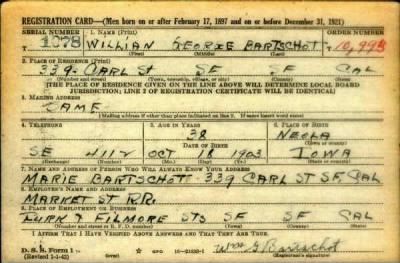 REGISTRATION CARD—(Men born on or after February 17, 1897 and on or before December 31, 1921)
SERIAL NUMBER 1. NAME (Print) ORDER NUMBER
1078 WILLIAN GEORGE BARTSCHOT 10,993
(First) (Middle) (Last)
2. PLACE OF RESIDENCE (Print)
339 CARL ST SF SF CAL
(Number and street) (Town, township, village, or city) (County) (State)
[THE PLACE OF RESIDENCE GIVEN ON THE LINE ABOVE WILL DETERMINE LOCAL BOARD
JURISDICTION; LINE 2 OF REGISTRATION CERTIFICATE WILL BE IDENTICAL]
3. MAILING ADDRESS
SAME
[Mailing address if other than place indicated on line 2. If same insert word same]
4. TELEPHONE 5. AGE IN YEARS 6. PLACE OF BIRTH
38 NEOLA
DATE OF BIRTH (Town or county)
SE 4112 OCT 18 1903 IOWA
(Exchange) (Number) (Mo.) (Day) (Yr.) (State or country)
7. NAME AND ADDRESS OF PERSON WHO WILL ALWAYS KNOW YOUR ADDRESS
MARIE BARTSCHOTT 339 CARL ST SF CAL
8. EMPLOYER'S NAME AND ADDRESS
MARKET ST R.R.
9. PLACE OF EMPLOYMENT OR BUSINESS
TURK & FILMORE STS SF SF CAL
(Number and street or R. F. D. number) (Town) (County) (State)
I AFFIRM THAT I HAVE VERIFIED ABOVE ANSWERS AND THAT THEY ARE TRUE.
D. S. S. Form 1
(Revised 1-1-42) (over) GPO 16—21630-1 Wm G Bartschot
(Registrant's signature)